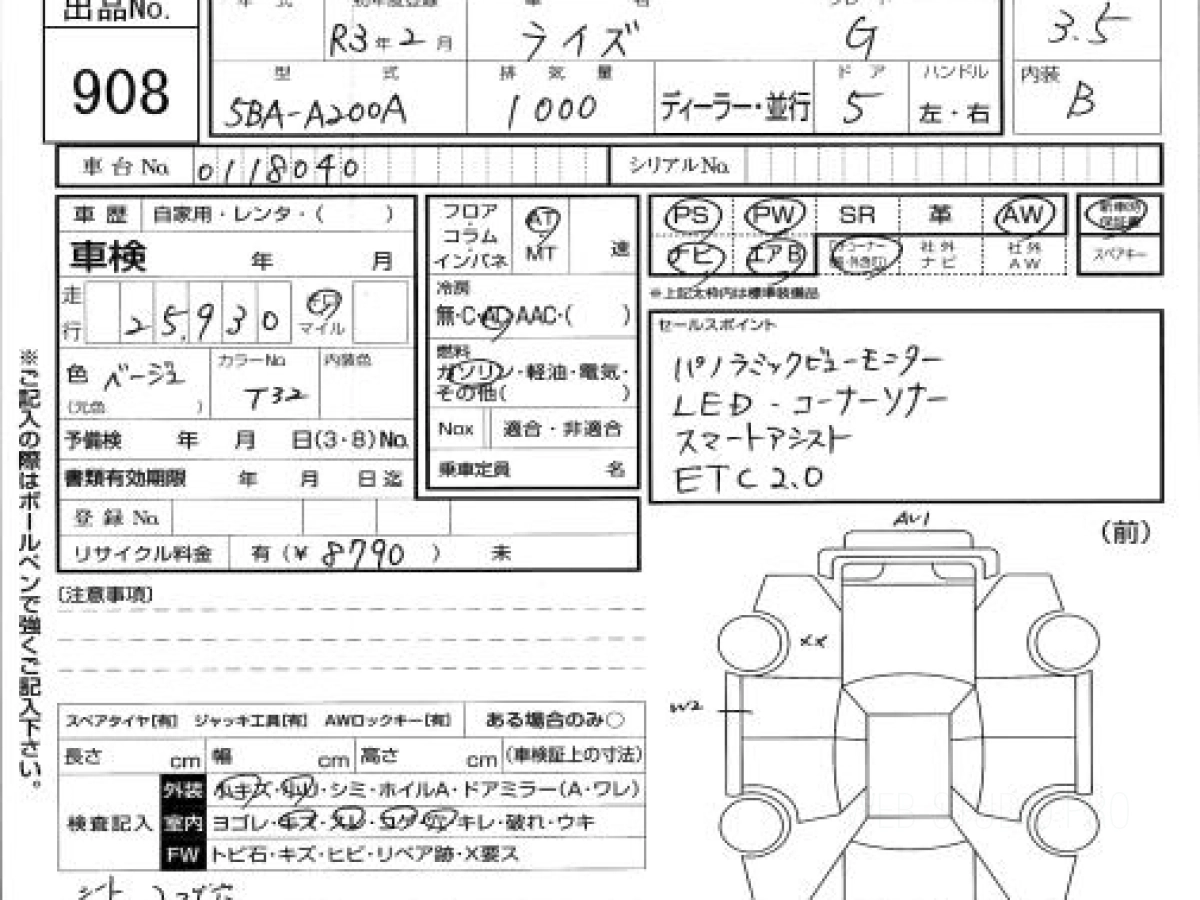 出品No.
908
R3年2月
ライズ
G
3.5
型式
5BA-A200A
排気量
1000
ディーラー・並行
ドア
5
ハンドル
左・右
内装
B
車台No. 0118040
シリアルNo.
車歴 自家用・レンタ・( )
車検 年 月
走行 25,930 マイル
色 ベージュ
(元色 )
カラーNo.
T32
内装色
予備検 年 月 日(3・8)No.
書類有効期限 年 月 日迄
登録No.
リサイクル料金 有(¥ 8790 ) 未
フロア・
コラム・
インパネ
AT
MT
速
冷房
無・C・AC・AAC・( )
燃料
ガソリン・軽油・電気・
その他( )
Nox 適合・非適合
乗車定員 名
PS PW SR 革 AW
ナビ エアB 社外ナビ 社外AW
新車時保証書
スペアキー
※上記太枠内は標準装備品
セールスポイント
パノラミックビューモニター
LED・コーナーソナー
スマートアシスト
ETC2.0
※ご記入の際はボールペンで強くご記入下さい。
(注意事項)
(前)
AU1
XX
W2
スペアタイヤ[有] ジャッキ工具[有] AWロックキー[有] ある場合のみ○
長さ cm 幅 cm 高さ cm (車検証上の寸法)
検査記入
外装 小キズ・・シミ・ホイルA・ドアミラー(A・ワレ)
室内 ヨゴレ・キズ・スレ・コゲ・穴・キレ・破れ・ウキ
FW トビ石・キズ・ヒビ・リペア跡・X要ス
シート コゲ穴